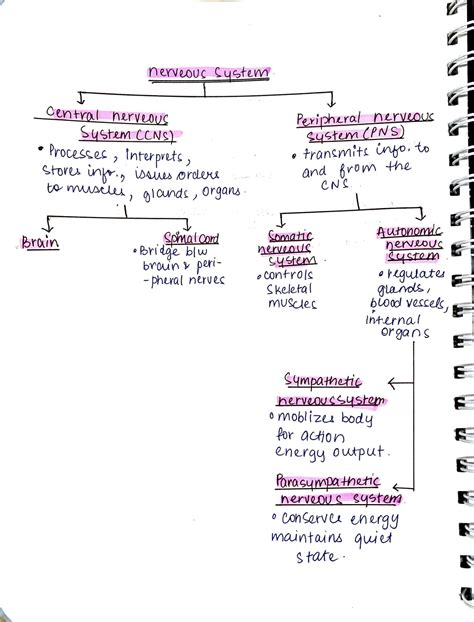 nerveous system
Central nerveous
System (CNS)
• Processes, interprets,
stores info., issues orders
to muscles, glands, organs.
Peripheral nerveous
System (PNS)
• transmits info. to
and from the
CNS.
Brain
Spinal Cord
• Bridge b/w
brain & peri-
-pheral nerves
Somatic
nerveous
system
• controls
skeletal
muscles
Autonomic
nerveous
system
• regulates
glands,
blood vessels,
internal
organs
Sympathetic
nerveous system
• moblizes body
for action
energy output.
Parasympathetic
nerveous system
• conserve energy
maintains quiet
state.